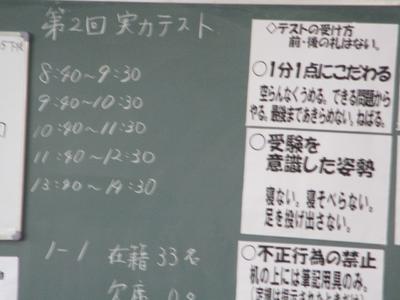 第2回 実力テスト
8:40～9:30
9:40～10:30
10:40～11:30
11:40～12:30
13:40～14:30
1-1 在籍 33名
欠席 0名
◇テストの受け方
前・後の礼はない。
○1分1点にこだわる
空らんなくうめる。できる問題から
やる。最後まであきらめない。ねばる。
○受験を
意識した姿勢
寝ない。寝そべらない。
足を投げ出さない。
○不正行為の禁止
机の上には筆記用具のみ。